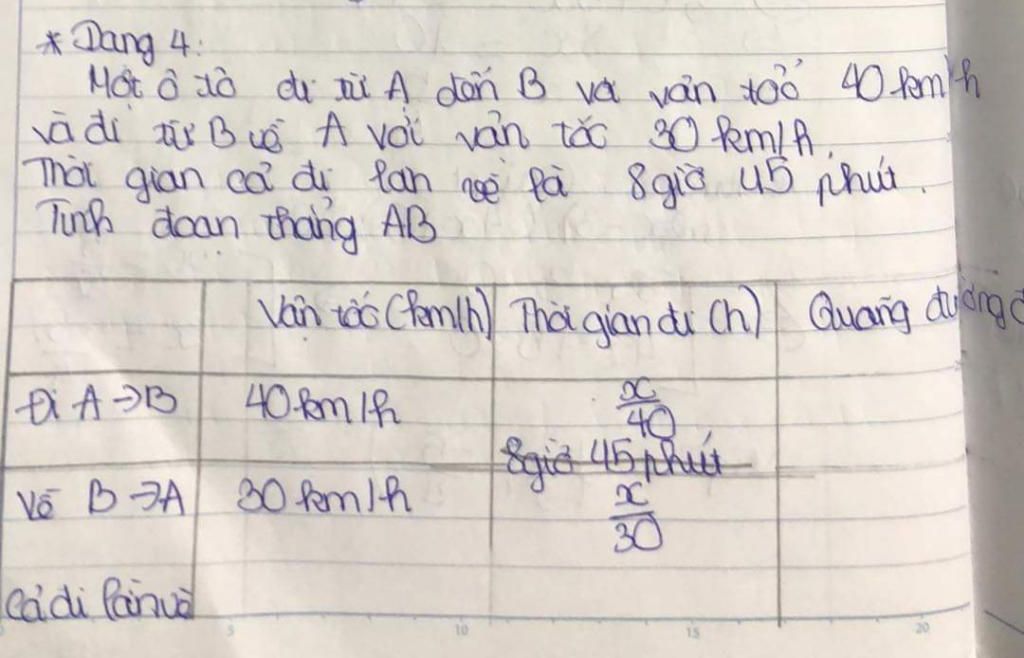 * Dạng 4:
Một ô tô đi từ A đến B với vận tốc 40 km/h
và đi từ B về A với vận tốc 30 km/h.
Thời gian cả đi lẫn về là 8 giờ 45 phút.
Tính đoạn thẳng AB
Vận tốc (km/h) Thời gian đi (h) Quãng đường đ
Đi A → B 40 km/h x/40
8 giờ 45 phút
Về B → A 30 km/h x/30
Cả đi lẫn về
5 10 15 20